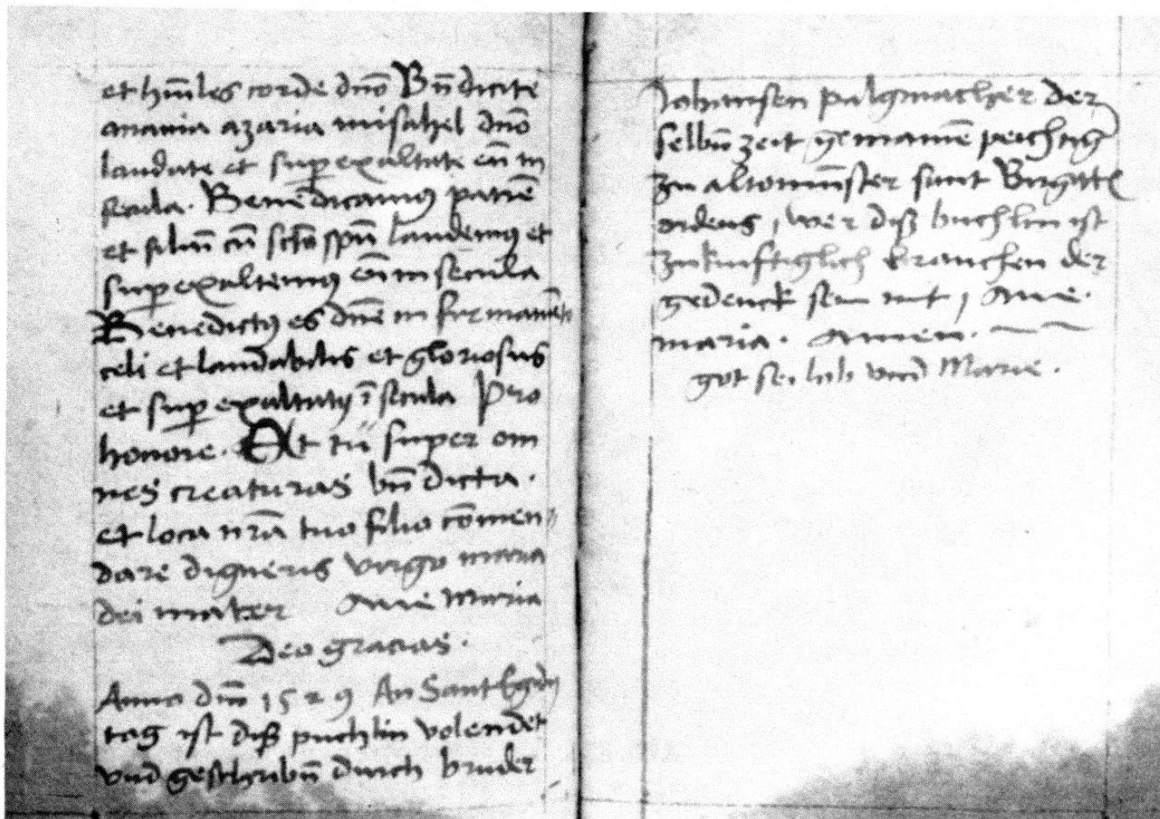 et hūiles corde dn̄o Bn̄dicite
anania azaria misahel dn̄o
laudate et sup̱exaltate eū in
secula. Benedicamꝰ patrē
et filiū cū sc̄to sp̄u laudemꝰ et
sup̱exaltemꝰ eū in secula
Benedictꝰ es dn̄e in firmamēto
celi et laudabilis et gloriosus
et sup̱ exaltatꝰ ī secula Pro
honore. At tu super om
nes creaturas bn̄dicta.
et loca nr̄a tuo filio cōmen⸗
dare digneris virgo maria
dei mater Aue Maria
Deo gracias.
Anno dn̄i 1529 An Sant Egidy
tag ist diß puchlin volendet
vnd geschribn̄ durch bruder
Johannsen palgmacher der
selbn̄ zeit gemainē peichtigᵉʳ
zu altomūnster sant Birgittē
ordens, wer diß buchlin ist
zukunftiglich brauchen der
gedenck sein mit, Aue.
maria. Amen.
got sei lob vnd Marie.